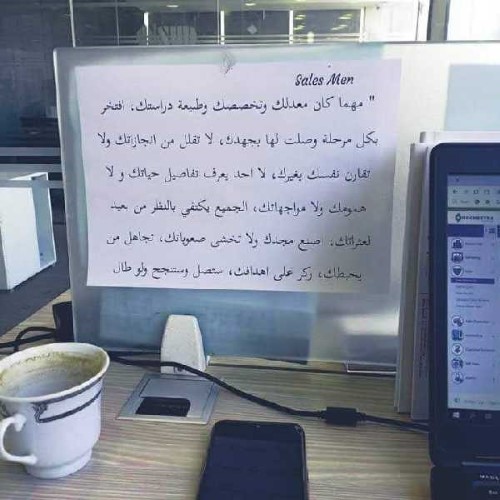 Sales Men
" مهما كان معدلك وتخصصك وطبيعة دراستك، افتخر
بكل مرحلة وصلت لها بجهدك، لا تقلل من انجازاتك ولا
تقارن نفسك بغيرك، لا احد يعرف تفاصيل حياتك و لا
همومك ولا مواجهاتك، الجميع يكتفي بالنظر من بعيد
لعثراتك. اصنع مجدك ولا تخشى صعوباتك، تجاهل من
يحبطك، ركز على اهدافك، ستصل وستنجح ولو طال